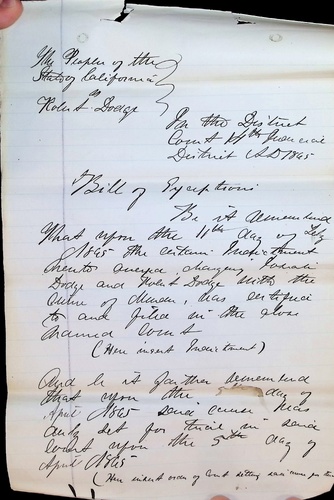 The People of the
State of California
vs
Robert Dodge
In the District
Court 14th Judicial
District AD 1865
Bill of Exceptions
Be it remembered
that upon the 11th day of Feby
1865 the certain Indictment
hereto annexed, charging
Dodge and Robert Dodge with the
crime of Murder, was certified
to and filed in the above
named Court
(Here insert Indictment)
And be it further remembered
that upon the 5th day of
April 1865 said cause was
duly set for trial in said
Court upon the 5th day of
April 1865
(Here insert order of Court setting said cause for